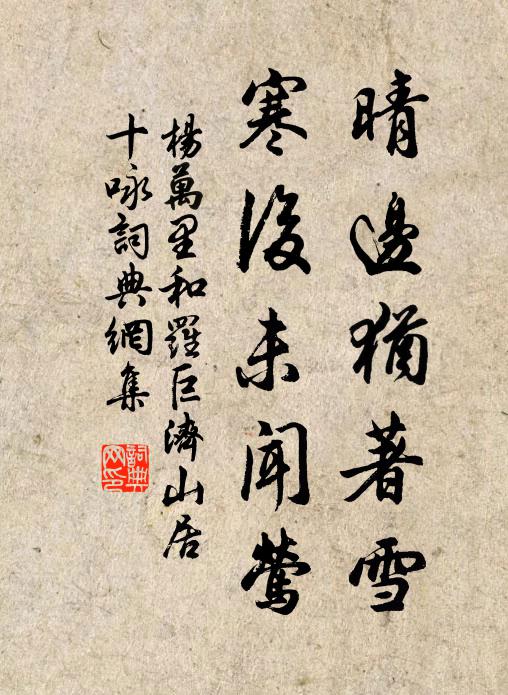 晴邊猶著雪
寒後未聞鶯
楊萬里和羅巨濟山居
十咏詞典網集
詞典网印